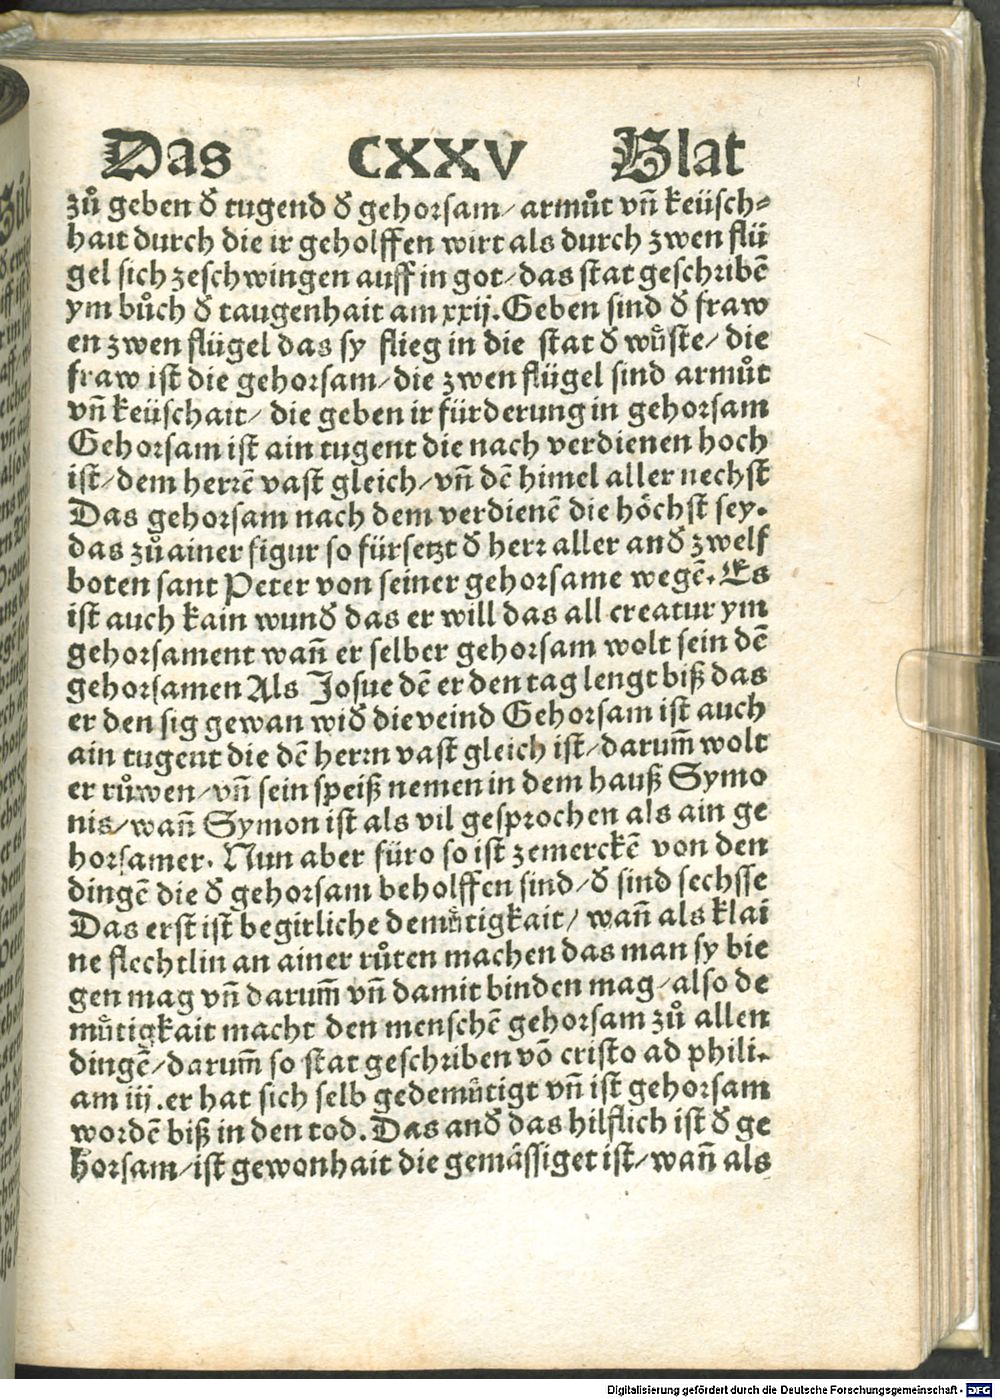 Das CXXV Blat
zů geben đ tugend đ gehorsam / armůt vñ keüsch⸗
hait durch die ir geholffen wirt als durch zwen flü
gel sich zeschwingen auff in got / das stat geschribē
ym bůch đ taugenhait am xxij. Geben sind đ fraw
en zwen flügel das sy flieg in die stat đ wůste / die
fraw ist die gehorsam / die zwen flügel sind armůt
vñ keüschait / die geben ir fürderung in gehorsam
Gehorsam ist ain tugent die nach verdienen hoch
ist / dem herrē vast gleich / vñ dē himel aller nechst
Das gehorsam nach dem verdienē die höchst sey.
das zů ainer figur so fürsetzt đ herr aller anđ zwelf
boten sant Peter von seiner gehorsame wegē. Es
ist auch kain wunđ das er will das all creatur ym
gehorsament wañ er selber gehorsam wolt sein dē
gehorsamen Als Josue dē er den tag lengt biß das
er den sig gewan wiđ die veind Gehorsam ist auch
ain tugent die dē herrn vast gleich ist / darum̄ wolt
er růwen / vñ sein speiß nemen in dem hauß Symo
nis / wañ Symon ist als vil gesprochen als ain ge
horsamer. Nun aber füro so ist zemerckē von den
dingē die đ gehorsam beholffen sind / đ sind sechsse
Das erst ist begirliche demůtigkait / wañ als klai
ne flechtlin an ainer růten machen das man sy bie
gen mag vñ darum̄ vñ damit binden mag / also de
můtigkait macht den menschē gehorsam zů allen
dingē / darum̄ so stat geschriben vō cristo ad phili.
am iij. er hat sich selb gedemůtigt vñ ist gehorsam
wordē biß in den tod. Das anđ das hilflich ist đ ge
horsam / ist gewonhait die gemässiget ist / wañ als
Digitalisierung gefördert durch die Deutsche Forschungsgemeinschaft - DFG